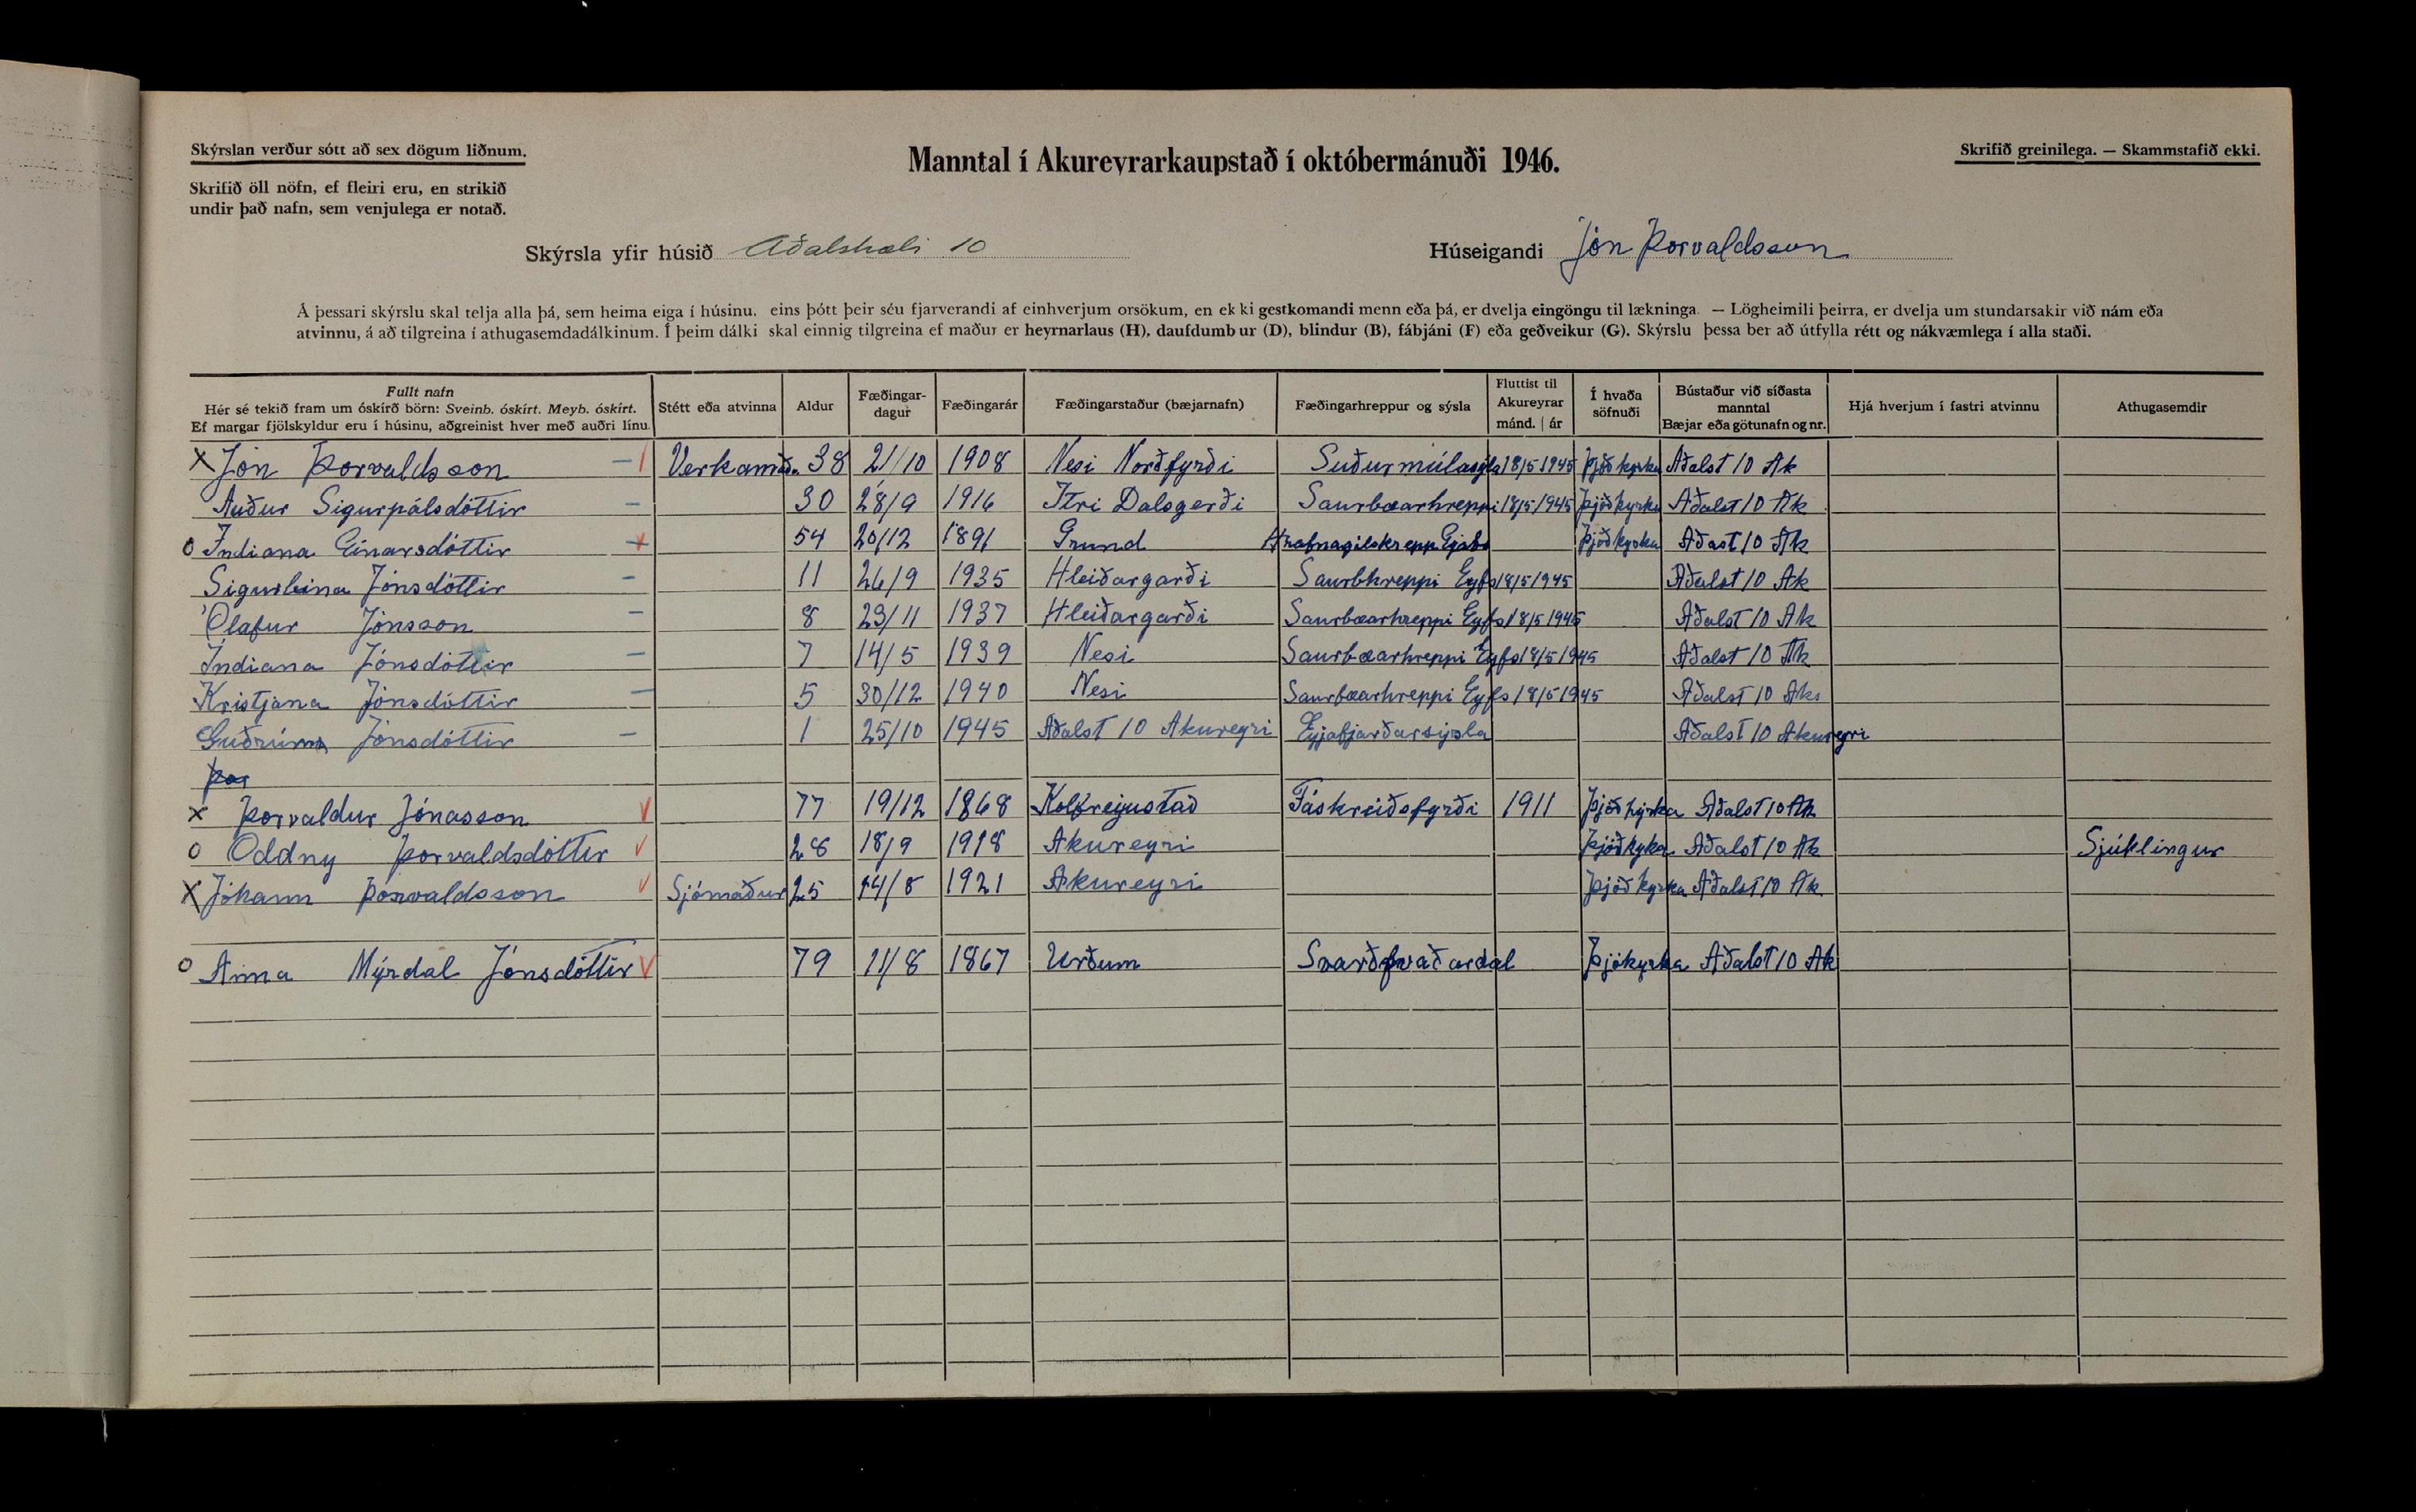 Skýrslan verður sótt að sex dögum liðnum.
Manntal í Akureyrarkaupstað í októbermánuði 1946.
Skrifið greinilega. — Skammstafið ekki.
Skrifið öll nöfn, ef fleiri eru, en strikið
undir það nafn, sem venjulega er notað.
Skýrsla yfir húsið Aðalstræti 10
Húseigandi Jón Þorvaldsson
Á þessari skýrslu skal telja alla þá, sem heima eiga í húsinu, eins þótt þeir séu fjarverandi af einhverjum orsökum, en ekki gestkomandi menn eða þá, er dvelja eingöngu til lækninga. — Lögheimili þeirra, er dvelja um stundarsakir við nám eða
atvinnu, á að tilgreina í athugasemdadálkinum. Í þeim dálki skal einnig tilgreina ef maður er heyrnarlaus (H), daufdumbur (D), blindur (B), fábjáni (F) eða geðveikur (G). Skýrslu þessa ber að útfylla rétt og nákvæmlega í alla staði.
Fullt nafn
Hér sé tekið fram um óskírð börn: Sveinb. óskírt. Meyb. óskírt.
Ef margar fjölskyldur eru í húsinu, aðgreinist hver með auðri línu.
Stétt eða atvinna
Aldur
Fæðingar-
dagur
Fæðingarár
Fæðingarstaður (bæjarnafn)
Fæðingarhreppur og sýsla
Fluttist til
Akureyrar
mánd. | ár
Í hvaða
söfnuði
Bústaður við síðasta
manntal
Bæjar eða götunafn og nr.
Hjá hverjum í fastri atvinnu
Athugasemdir
X Jón Þorvaldsson Verkamað. 38 21/10 1908 Nesi Norðfyrði Suðurmúlasýsla 18/5 1945 Þjóðkyrka Aðalst 10 Ak
Auður Sigurpálsdóttir 30 28/9 1916 Itri Dalsgerði Saurbæarhreppi 18/5 1945 Þjóðkyrka Aðalst 10 Ak
o Indiana Einarsdóttir 54 20/12 1891 Grund Hrafnagilshrepp Þjóðkyrka Aðast 10 Ak
Sigurlína Jónsdóttir 11 26/9 1935 Hleiðargarði Saurbhreppi Eyfs 18/5 1945 Aðalst 10 Ak
Ólafur Jónsson 8 23/11 1937 Hleiðargarði Saurbæarhreppi Eyfs 18/5 1945 Aðalst 10 Ak
Indiana Jónsdóttir 7 14/5 1939 Nesi Saurbæarhreppi Eyfs 18/5 1945 Aðalst 10 Ak
Kristjana Jónsdóttir 5 30/12 1940 Nesi Saurbæarhreppi Eyfs 18/5 1945 Aðalst 10 Ak
Guðrún Jónsdóttir 1 25/10 1945 Aðalst 10 Akureyri Eyjafjarðarsýsla Aðalst 10 Akureyri
Þor
x Þorvaldur Jónasson 77 19/12 1868 Kolfreyustað Fáskrúðsfyrði 1911 Þjóðkyrka Aðalst 10 Ak
o Oddny Þorvaldsdóttir 28 18/9 1918 Akureyri Þjóðkyka Aðalst 10 Ak Sjúklingur
X Jóhann Þorvaldsson Sjómaður 25 14/8 1921 Akureyri Þjóðkyrka Aðalst 10 Ak
o Anna Mýrdal Jónsdóttir 79 11/8 1867 Urðum Þjókyrka Aðalst 10 Ak